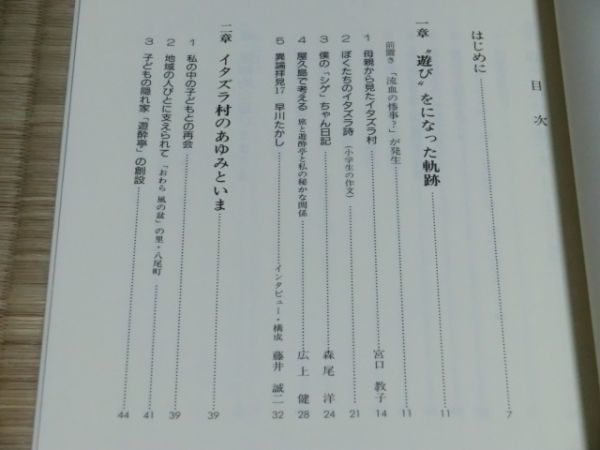 目次
はじめに 7
一章 〝遊び〟をになった軌跡 11
前置き 「流血の惨事?」が発生 11
1 母親から見たイタズラ村 宮口 教子 14
2 ぼくたちのイタズラ詩 (小学生の作文) 21
3 僕の「シゲ」ちゃん日記 森尾 洋 24
4 屋久島で考える 旅と遊酔亭と私の秘かな関係 広上 健 28
5 異論拝見17 早川たかし インタビュー・構成 藤井 誠二 32
二章 イタズラ村のあゆみといま 39
1 私の中の子どもとの再会 39
2 地域の人びとに支えられて 「おわら風の盆」の里・八尾町 41
3 子どもの隠れ家「遊酔亭」の創設 44